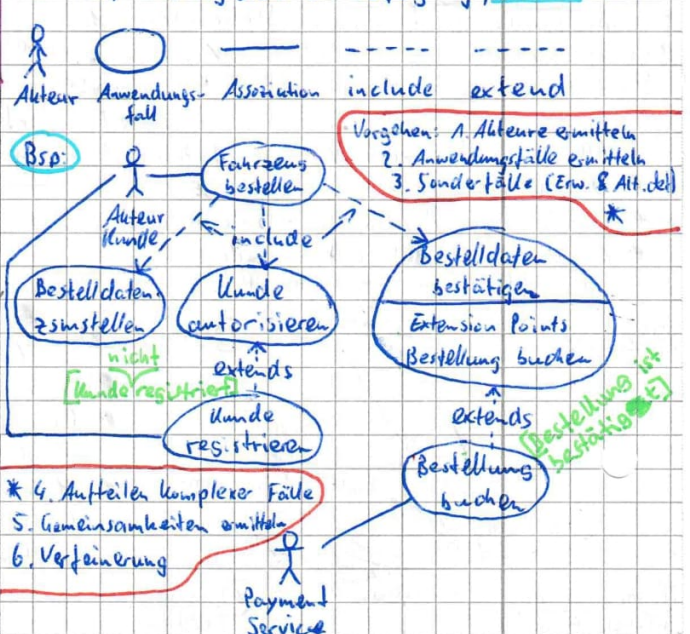 Akteur
Anwendungs-
fall
Assoziation
include
extend
Vorgehen: 1. Akteure ermitteln
2. Anwendungsfälle ermitteln
3. Sonderfälle (Erw. & Alt. def)
*
Bsp:
Fahrzeug
bestellen
Akteur
Kunde
include
Bestelldaten
zsmstellen
Kunde
autorisieren
Bestelldaten
bestätigen
Extension Points
Bestellung buchen
nicht
[Kunde registriert]
extends
Kunde
registrieren
extends
[Bestellung ist
bestätigt]
Bestellung
buchen
* 4. Aufteilen komplexer Fälle
5. Gemeinsamkeiten ermitteln
6. Verfeinerung
Payment
Service